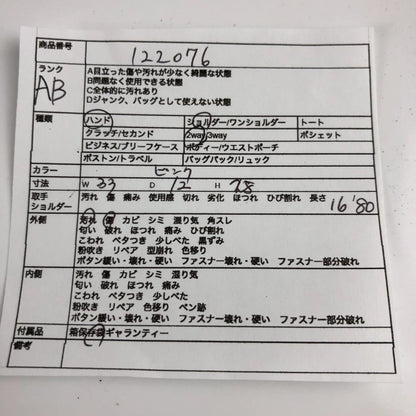 商品番号 122076
ランク AB
A目立った傷や汚れが少なく綺麗な状態
B問題なく使用できる状態
C全体的に汚れあり
Dジャンク、バッグとして使えない状態
種類 ハンド ショルダー/ワンショルダー トート
クラッチ/セカンド 2way/3way ポシェット
ビジネス/ブリーフケース ボディー/ウエストポーチ
ボストン/トラベル バッグパック/リュック
カラー ピンク
寸法 W 33 D 12 H 28
取手 ショルダー 汚れ 傷 痛み 使用感 切れ 劣化 ほつれ ひび割れ 長さ 16 80
外側 汚れ 傷 カビ シミ 湿り気 角スレ
匂い 破れ ほつれ 痛み ひび割れ
こわれ ベタつき 少しべた 黒ずみ
粉吹き リペア 型崩れ 色移り
ボタン緩い・壊れ・硬い ファスナー壊れ・硬い ファスナー部分破れ
内側 汚れ 傷 カビ シミ 湿り気
匂い 破れ ほつれ 痛み
こわれ ベタつき 少しべた
粉吹き リペア 色移り ペン跡
ボタン緩い・壊れ・硬い ファスナー壊れ・硬い ファスナー部分破れ
付属品 箱保存袋ギャランティー
備考